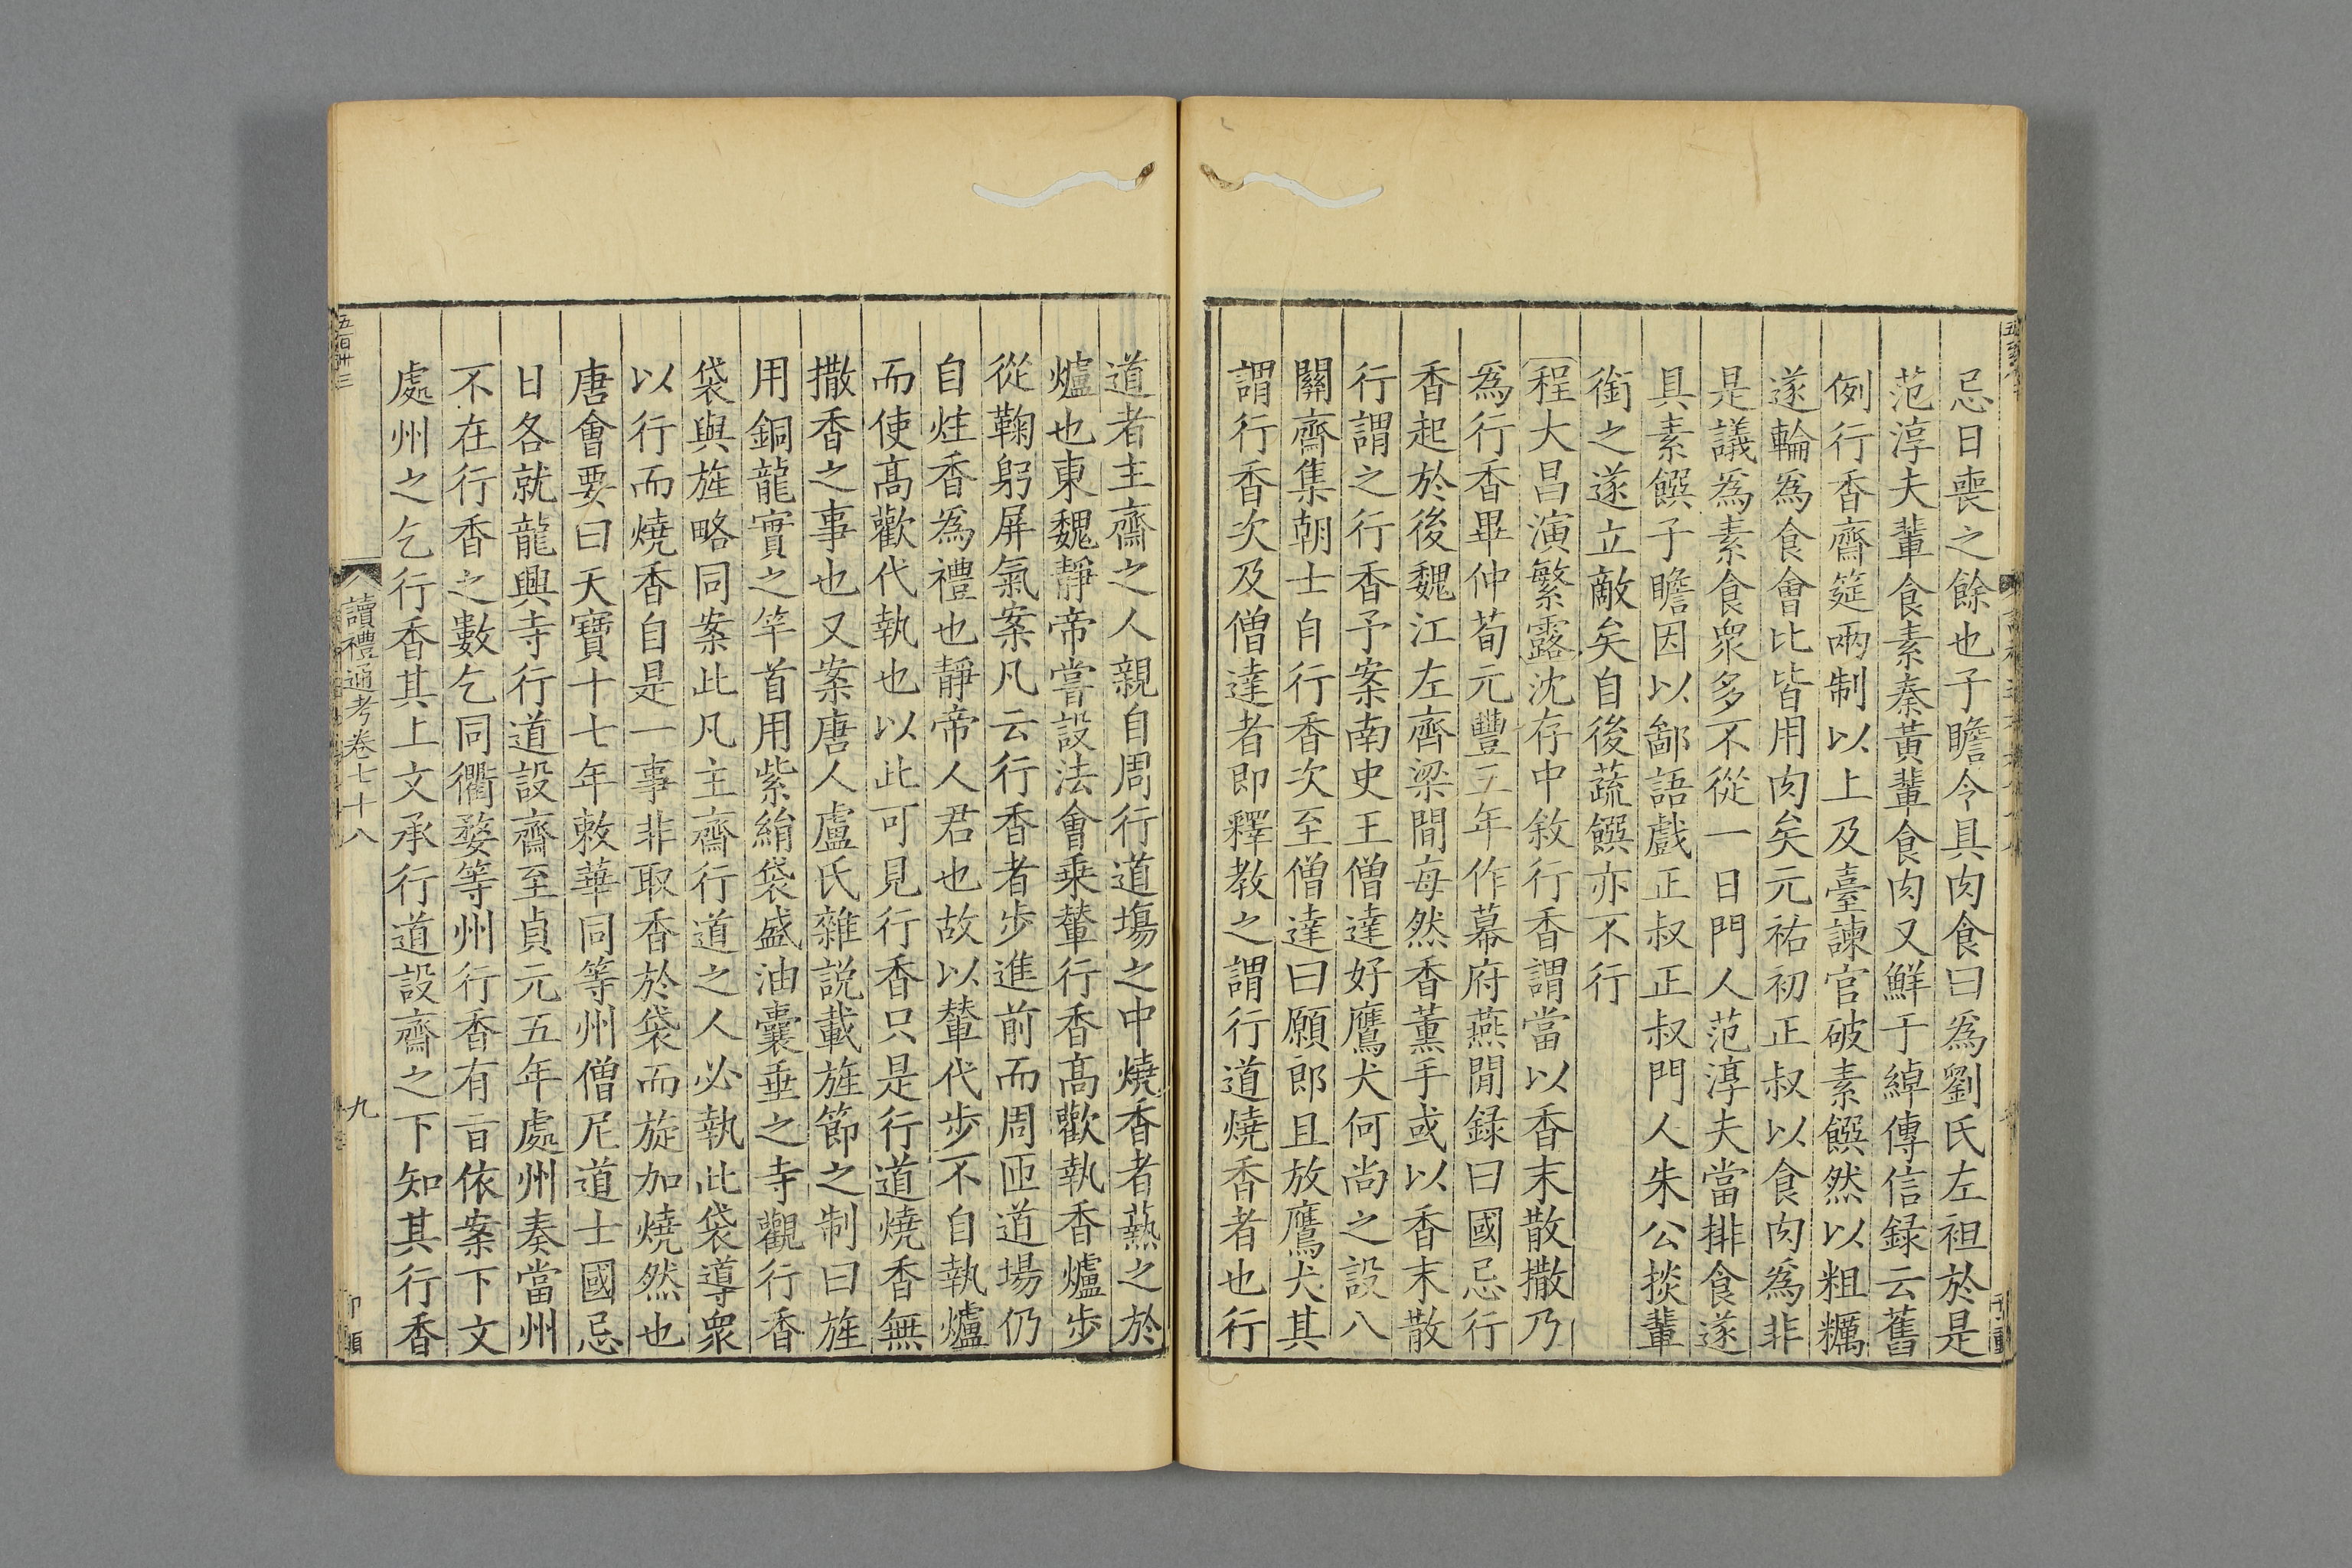 忌日喪之餘也子瞻令具肉食曰爲劉氏左袒於是
范淳夫輩食素秦黃輩食肉又鮮于綽傳信録云舊
例行香齋筵兩制以上及臺諫官破素饌然以粗糲
遂輪爲食會比皆用肉矣元祐初正叔以食肉爲非
是議爲素食衆多不從一日門人范淳夫當排食遂
具素饌子瞻因以鄙語戲正叔正叔門人朱公掞輩
銜之遂立敵矣自後蔬饌亦不行
程大昌演繁露沈存中敘行香謂當以香末散撒乃
爲行香畢仲荀元豐三年作幕府燕閒録曰國忌行
香起於後魏江左齊梁間每然香薰手或以香末散
行謂之行香予案南史王僧達好鷹犬何尚之設八
關齋集朝士自行香次至僧達曰願郎且放鷹犬其
謂行香次及僧達者即釋教之謂行道燒香者也行
道者主齋之人親自周行道塲之中燒香者爇之於
爐也東魏靜帝嘗設法會乗輦行香高歡執香爐步
從鞠躬屏氣案凡云行香者步進前而周匝道場仍
自炷香爲禮也靜帝人君也故以輦代步不自執爐
而使高歡代執也以此可見行香只是行道燒香無
撒香之事也又案唐人盧氏雜説載旌節之制曰旌
用銅龍實之竿首用紫絹袋盛油囊垂之寺觀行香
袋與旌略同案此凡主齋行道之人必執此袋導衆
以行而燒香自是一事非取香於袋而旋加燒然也
唐會要曰天寶十七年敕華同等州僧尼道士國忌
日各就龍興寺行道設齋至貞元五年處州奏當州
不在行香之數乞同衢婺等州行香有旨依案下文
處州之乞行香其上文承行道設齋之下知其行香
五百卅三
讀禮通考卷七十八
九